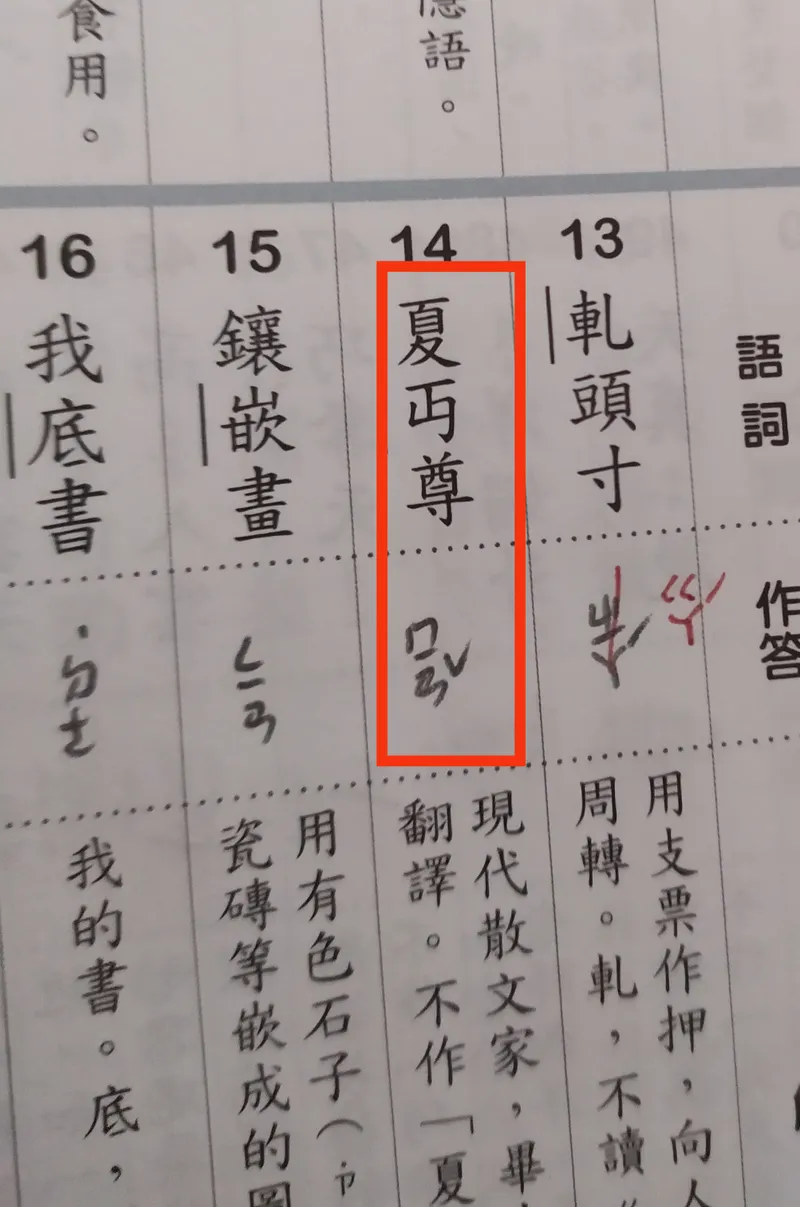 語詞
作答
13
軋頭寸
ㄍㄚˊ
用支票作押，向人
周轉。軋，不讀
隱語。
14
夏丏尊
ㄇㄧㄢˇ
現代散文家，畢
翻譯。不作「夏
15
鑲嵌畫
ㄑㄧㄢ
用有色石子（ㄗˇ
瓷磚等嵌成的圖
食用。
16
我底書
˙ㄉㄜ
我的書。底，